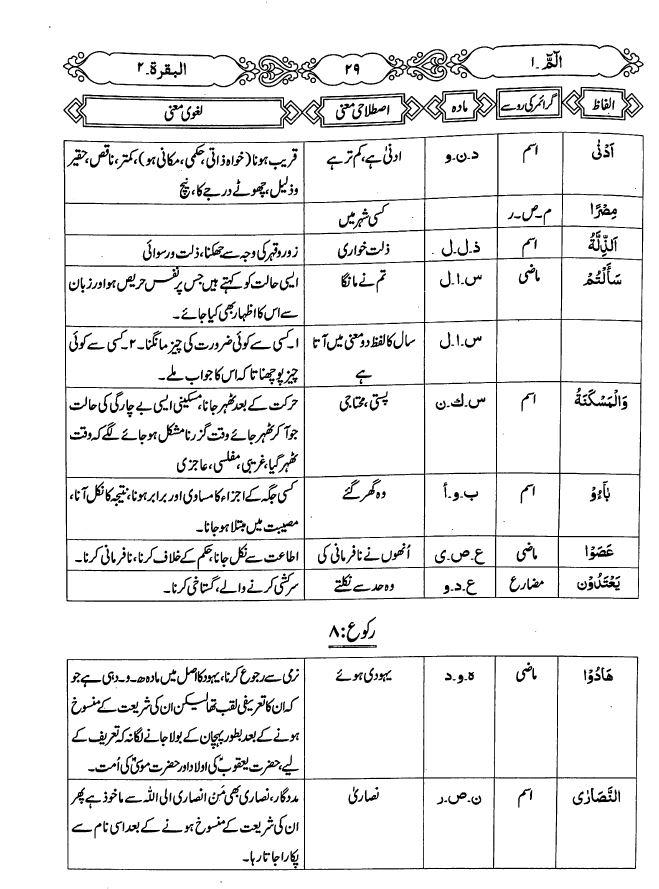 الٓمّٓ۔۱ ۲۹ البقرۃ۔۲
الفاظ گرائمر کی رو سے مادہ اصطلاحی معنی لغوی معنی
اَدْنٰی اسم د۔ن۔و ادنیٰ ہے، کم تر ہے قریب ہونا (خواہ ذاتی، حکمی، مکانی ہو)، کمتر، ناقص، حقیر
وذلیل، چھوٹے درجے کا، نیچ
مِصْرًا م۔ص۔ر کسی شہر میں
اَلذِّلَّۃُ اسم ذ۔ل۔ل ذلت خواری زور و قہر کی وجہ سے جھکنا، ذلت ورسوائی
سَاَلْتُمْ ماضی س۔ا۔ل تم نے مانگا ایسی حالت کو کہتے ہیں جس پر نفس حریص ہو اور زبان
سے اس کا اظہار بھی کیا جائے۔
س۔ا۔ل سال کا لفظ دو معنی میں آتا ۱۔کسی سے کوئی ضرورت کی چیز مانگنا۔ ۲۔کسی سے کوئی
ہے چیز پوچھنا تاکہ اس کا جواب ملے۔
وَالْمَسْکَنَۃُ اسم س۔ک۔ن پستی، محتاجی حرکت کے بعد ٹھہر جانا، مسکینی ایسی بے چارگی کی حالت
جو آکر ٹھہر جائے وقت گزرنا مشکل ہو جائے لگے کہ وقت
ٹھہر گیا، غریبی، مفلسی، عاجزی
بَآءُوْ اسم ب۔و۔أ وہ گھر گئے کسی جگہ کے اجزاء کا مساوی اور برابر ہونا، نتیجہ کا نکل آنا،
مصیبت میں مبتلا ہو جانا۔
عَصَوْا ماضی ع۔ص۔ی اُنھوں نے نافرمانی کی اطاعت سے نکل جانا، حکم کے خلاف کرنا، نافرمانی کرنا۔
یَعْتَدُوْن مضارع ع۔د۔و وہ حد سے نکلتے سرکشی کرنے والے، گستاخی کرنا۔
رکوع:۸
ھَادُوْا ماضی ہ۔و۔د یہودی ہوئے نرمی سے رجوع کرنا، یہود کا اصل میں مادہ ھ۔و۔د ہی ہے جو
کہ ان کا تعریفی لقب تھا لیکن ان کی شریعت کے منسوخ
ہونے کے بعد بطور پہچان کے بولا جانے لگا نہ کہ تعریف کے
لیے، حضرت یعقوبؑ کی اولاد اور حضرت موسیٰؑ کی اُمت۔
النَّصَارٰی اسم ن۔ص۔ر نصاریٰ مددگار، نصاریٰ بھی مَنْ انصاری الی اللہ سے ماخوذ ہے پھر
ان کی شریعت کے منسوخ ہونے کے بعد اسی نام سے
پکارا جاتا رہا۔